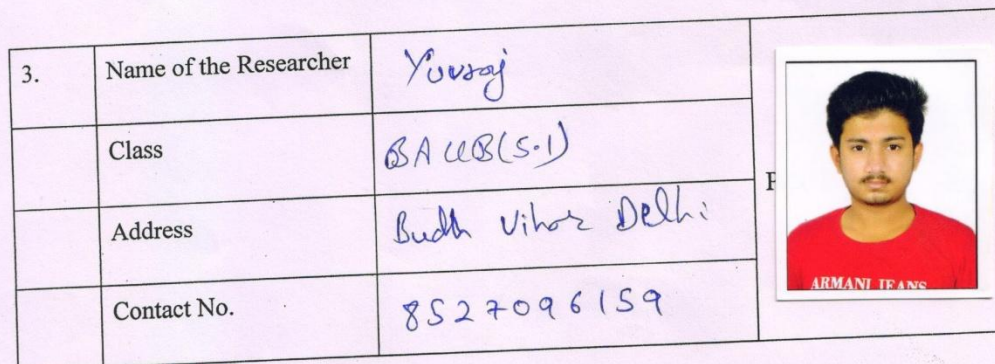 3. Name of the Researcher Yuvraj
Class BA LLB(S.1)
Address Budh Vihar Delhi
Contact No. 8527096159
ARMANI JEANS